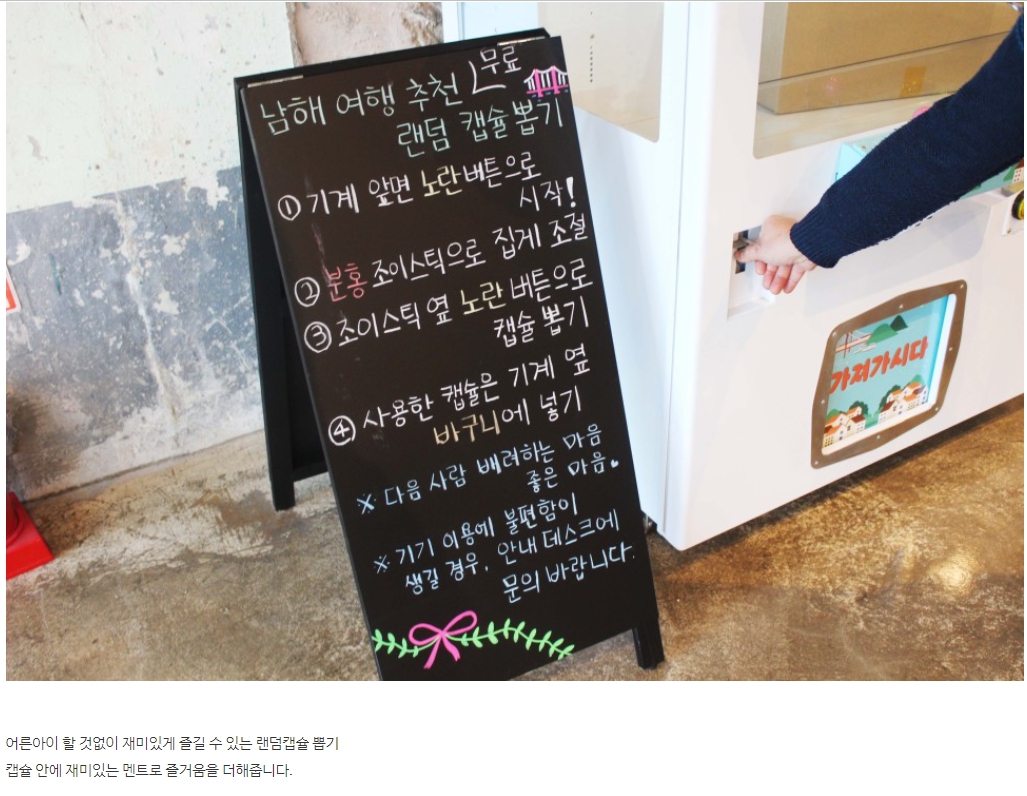 남해 여행 추천 무료
랜덤 캡슐뽑기
① 기계 앞면 노란버튼으로
시작!
② 분홍 조이스틱으로 집게 조절
③ 조이스틱 옆 노란 버튼으로
캡슐 뽑기
④ 사용한 캡슐은 기계 옆
바구니에 넣기
※ 다음 사람 배려하는 마음
좋은 마음.
※ 기기 이용에 불편함이
생길 경우, 안내데스크에
문의 바랍니다.
가져가시다
어른아이 할 것없이 재미있게 즐길 수 있는 랜덤캡슐 뽑기
캡슐 안에 재미있는 멘트로 즐거움을 더해줍니다.